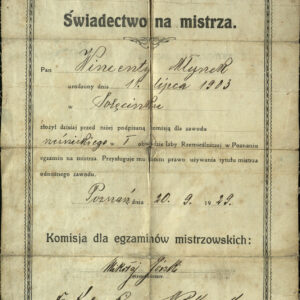 Świadectwo na mistrza.
Pan Wincenty Młynek
urodzony dnia 11 lipca 1903
w
złożył dzisiaj przed niżej podpisaną komisją dla zawodu
w I obwodzie Izby Rzemieślniczej w Poznaniu
egzamin na mistrza. Przysługuje mu zatem prawo używania tytułu mistrza
odnośnego zawodu.
Poznań dnia 20. 9. 1929.
Komisja dla egzaminów mistrzowskich:
Mikołaj